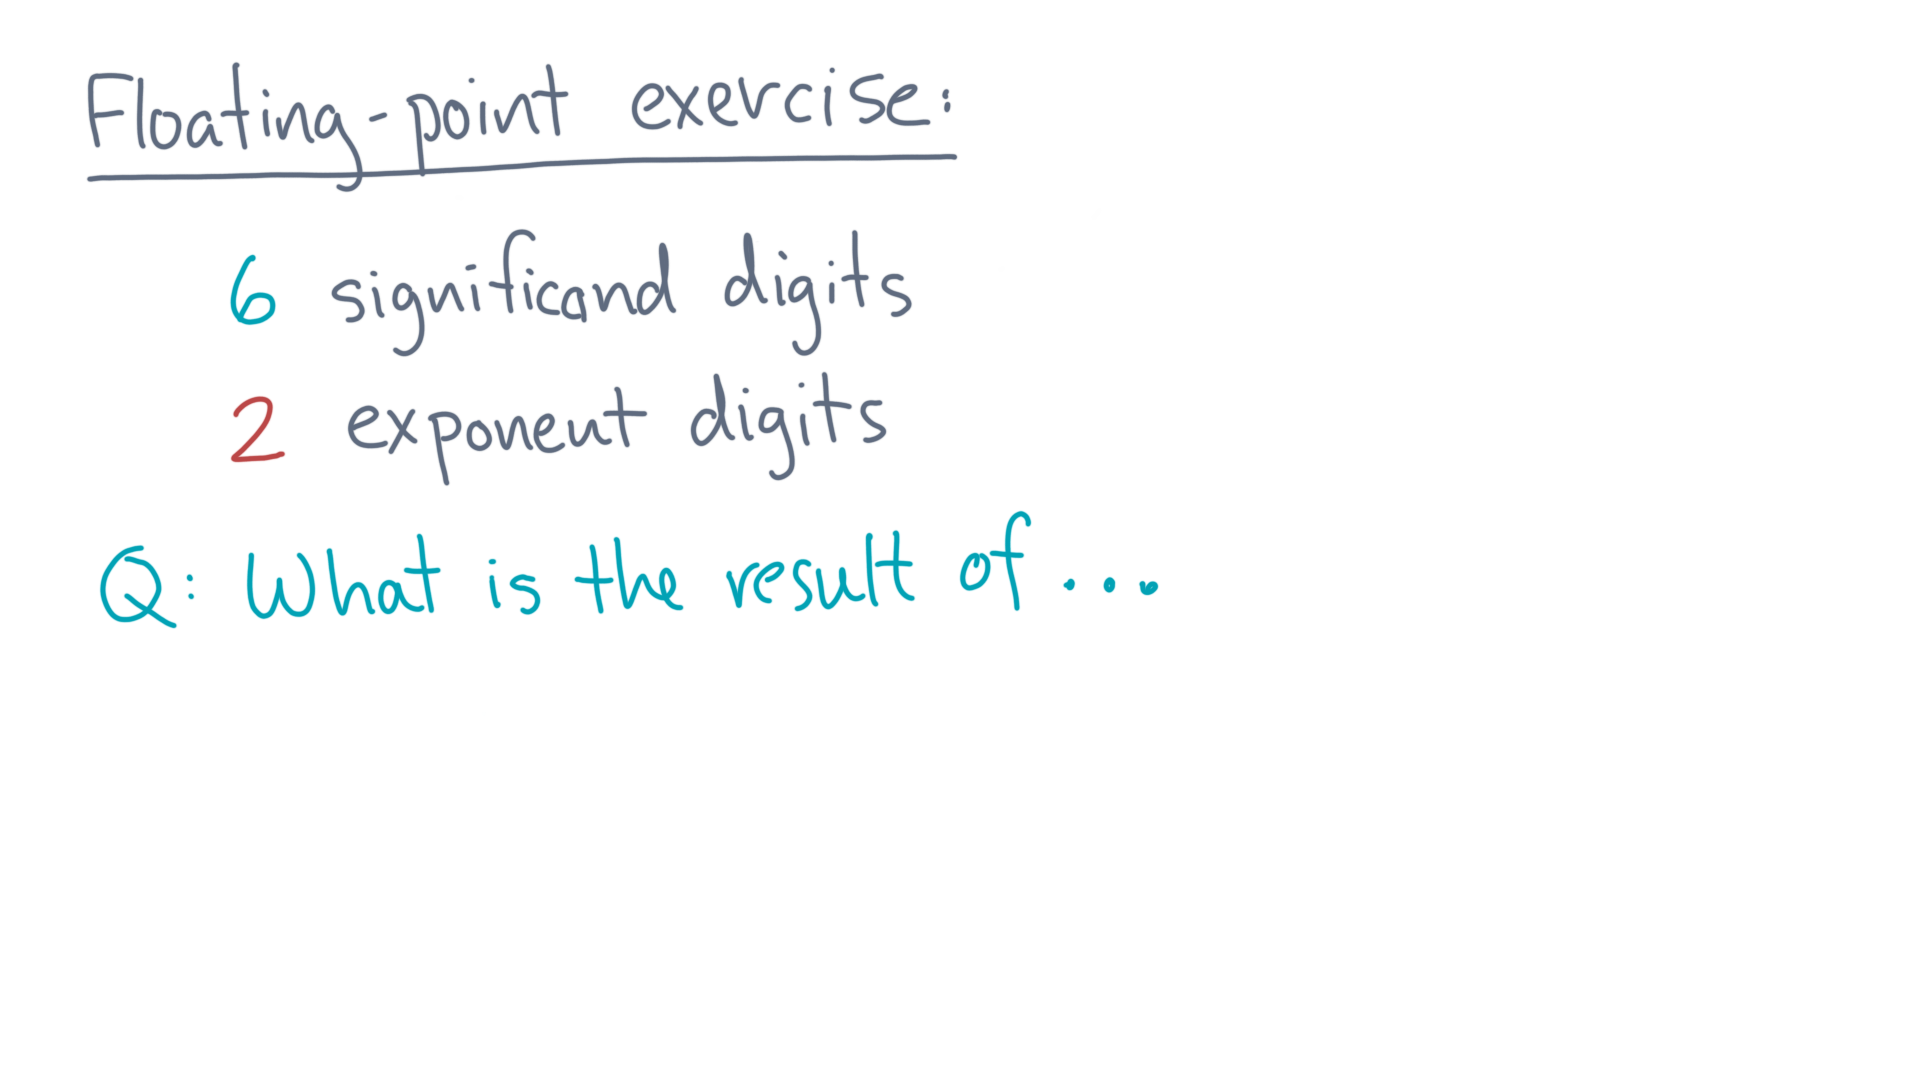 Floating-point exercise:
6 significand digits
2 exponent digits
Q: What is the result of ...